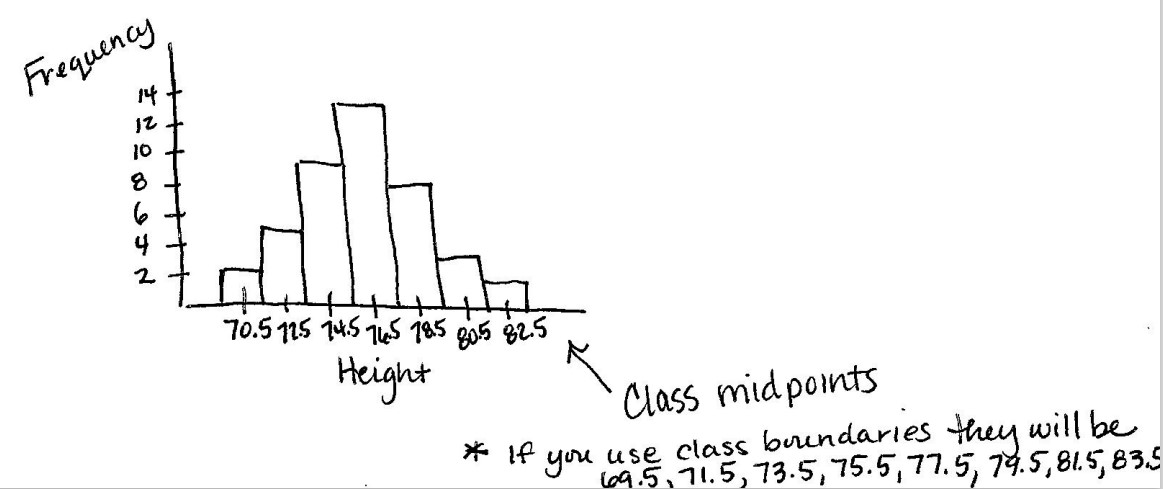 Frequency
14
12
10
8
6
4
2
70.5 72.5 74.5 76.5 78.5 80.5 82.5
Height
Class midpoints
* If you use class boundaries they will be
69.5, 71.5, 73.5, 75.5, 77.5, 79.5, 81.5, 83.5